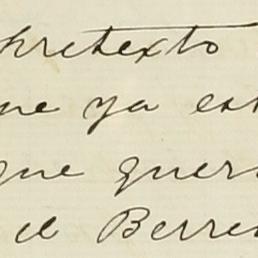 pretexto
ne ya est
que quer
el Berre